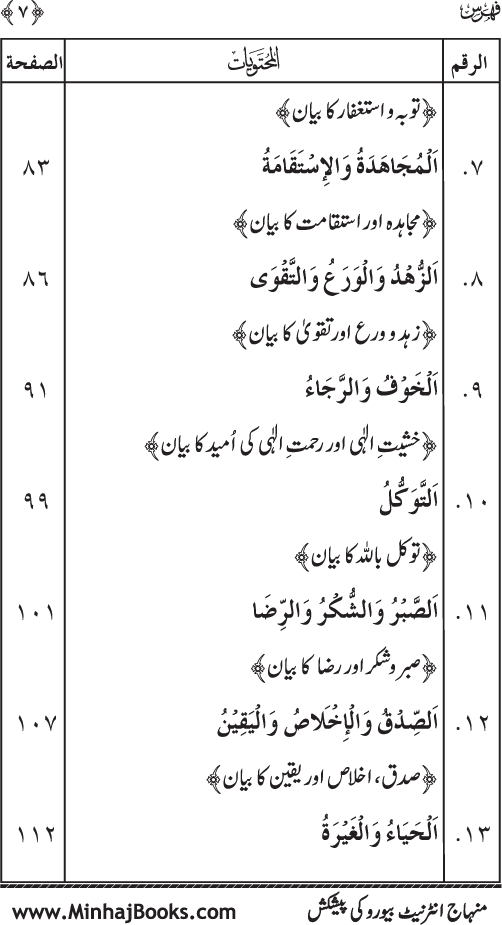 فہرس ﴿٧﴾
الرقم المحتويات الصفحة
﴿توبہ و استغفار کا بیان﴾
٧. اَلْمُجَاهَدَةُ وَالإِسْتَقَامَةُ ٨٣
﴿مجاہدہ اور استقامت کا بیان﴾
٨. اَلزُّهْدُ وَالْوَرَعُ وَالتَّقْوَى ٨٦
﴿زہد و ورع اور تقویٰ کا بیان﴾
٩. اَلْخَوْفُ وَالرَّجَاءُ ٩١
﴿خشیتِ الٰہی اور رحمتِ الٰہی کی اُمید کا بیان﴾
١٠. اَلتَّوَكُّلُ ٩٩
﴿توکل باللہ کا بیان﴾
١١. اَلصَّبْرُ وَالشُّكْرُ وَالرِّضَا ١٠١
﴿صبر و شکر اور رضا کا بیان﴾
١٢. اَلصِّدْقُ وَالإِخْلَاصُ وَالْيَقِيْنُ ١٠٧
﴿صدق، اخلاص اور یقین کا بیان﴾
١٣. اَلْحَيَاءُ وَالْغَيْرَةُ ١١٢
منہاج انٹرنیٹ بیورو کی پیشکش www.MinhajBooks.com